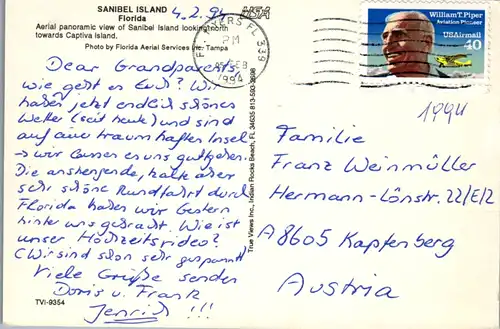 SANIBEL ISLAND
Florida
4.2.94
USA
Aerial panoramic view of Sanibel Island looking north
towards Captiva Island.
Photo by Florida Aerial Services Inc. Tampa
MYERS FL 339
PM
05 FEB
1994
William T. Piper
Aviation Pioneer
USAirmail
40
1994
Dear Grandparents
wie geht es Euch? Wir
haben jetzt endlich schönes
Wetter (seit heute) und sind
auf einer traumhaften Insel
→ wir lassen es uns gutgehen.
Die anstrengende, hatte aber
sehr schöne Rundfahrt durch
Florida haben wir gestern
hinter uns gebracht. Wie ist
unser Hochzeitsvideo?
(Wir sind schon sehr gespannt)
Viele Grüße senden
Doris u. Frank
Jenrich !!!
TVI-9354
True Views Inc., Indian Rocks Beach, FL 34635 813-593-2698
Familie
Franz Weinmüller
Hermann-Lönstr. 22/E/2
A 8605 Kapfenberg
Austria